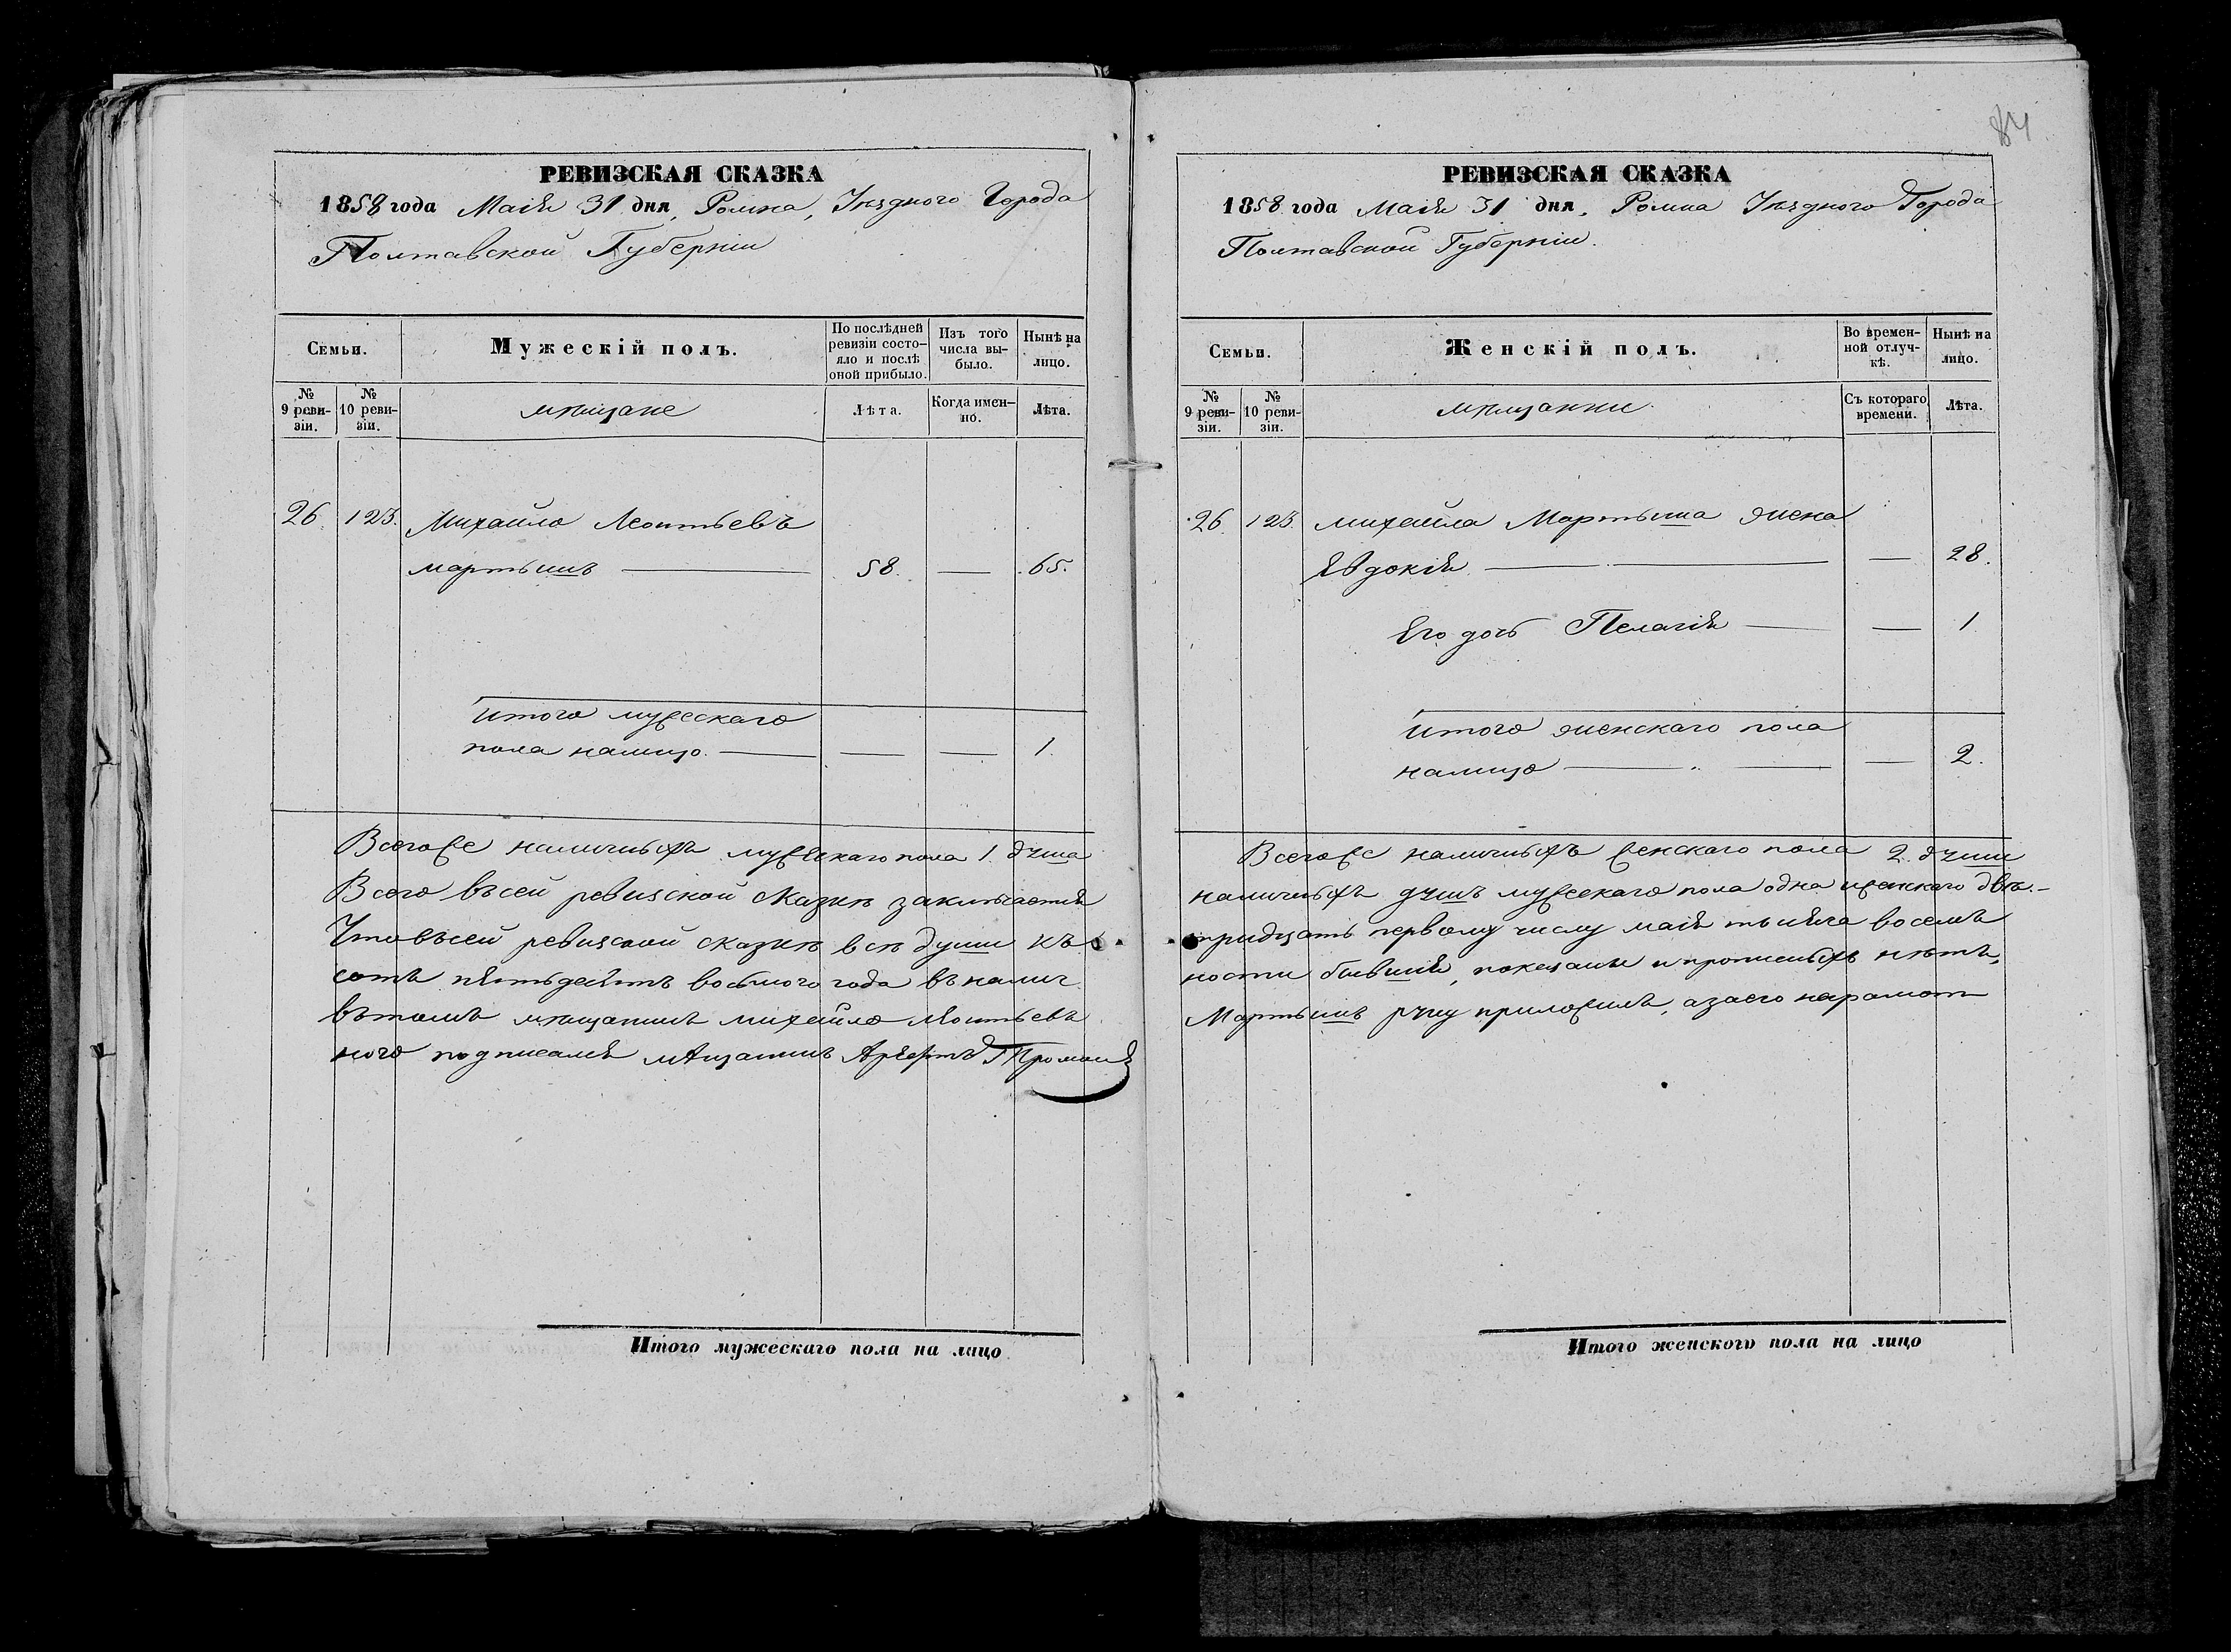 84
РЕВИЗСКАЯ СКАЗКА
1858 года Маія 31 дня, Ромна, Уѣзднаго Города
Полтавской Губерніи
Семьи.
Мужескій полъ.
По послѣдней ревизіи состояло и послѣ оной прибыло.
Изъ того числа выбыло.
Нынѣ на лицо.
№ 9 ревизіи.
№ 10 ревизіи.
мѣщане
Лѣта.
Когда именно.
Лѣта.
26 123. Михайло Леонтьевъ
мартышъ — 58. — 65.
итого мужескаго
пола налицо — — — 1.
Всегоже наличныхъ мужескаго пола 1 душа
Всего въсей ревизской сказкѣ заключается
Что въсей ревизской сказкѣ всѣ души къ
сотъ пятьдесятъ восьмого года въ налич
въ томъ мѣщанинъ михайло Леонтьевъ
ного подписался мѣщанинъ
Итого мужескаго пола на лицо
РЕВИЗСКАЯ СКАЗКА
1858 года Маія 31 дня, Ромна Уѣзднаго Города
Полтавской Губерніи.
Семьи.
Женскій полъ.
Во временной отлучкѣ.
Нынѣ на лицо.
№ 9 ревизіи.
№ 10 ревизіи.
мѣщанки
Съ котораго времени.
Лѣта.
26 123. михайла Мартыша жена
Явдокія — — 28.
Его дочь Пелагія — — 1
итого женскаго пола
налицо — — 2.
Всегоже наличныхъ женскаго пола 2 души
наличныхъ душъ мужескаго пола одна иженскаго двѣ.—
тридцать первому числу маія тысяча восемъ
ности бывшія, показаны и прописныхъ нѣтъ,
Мартышъ руку приложилъ, азаего неграмот
Итого женского пола на лицо